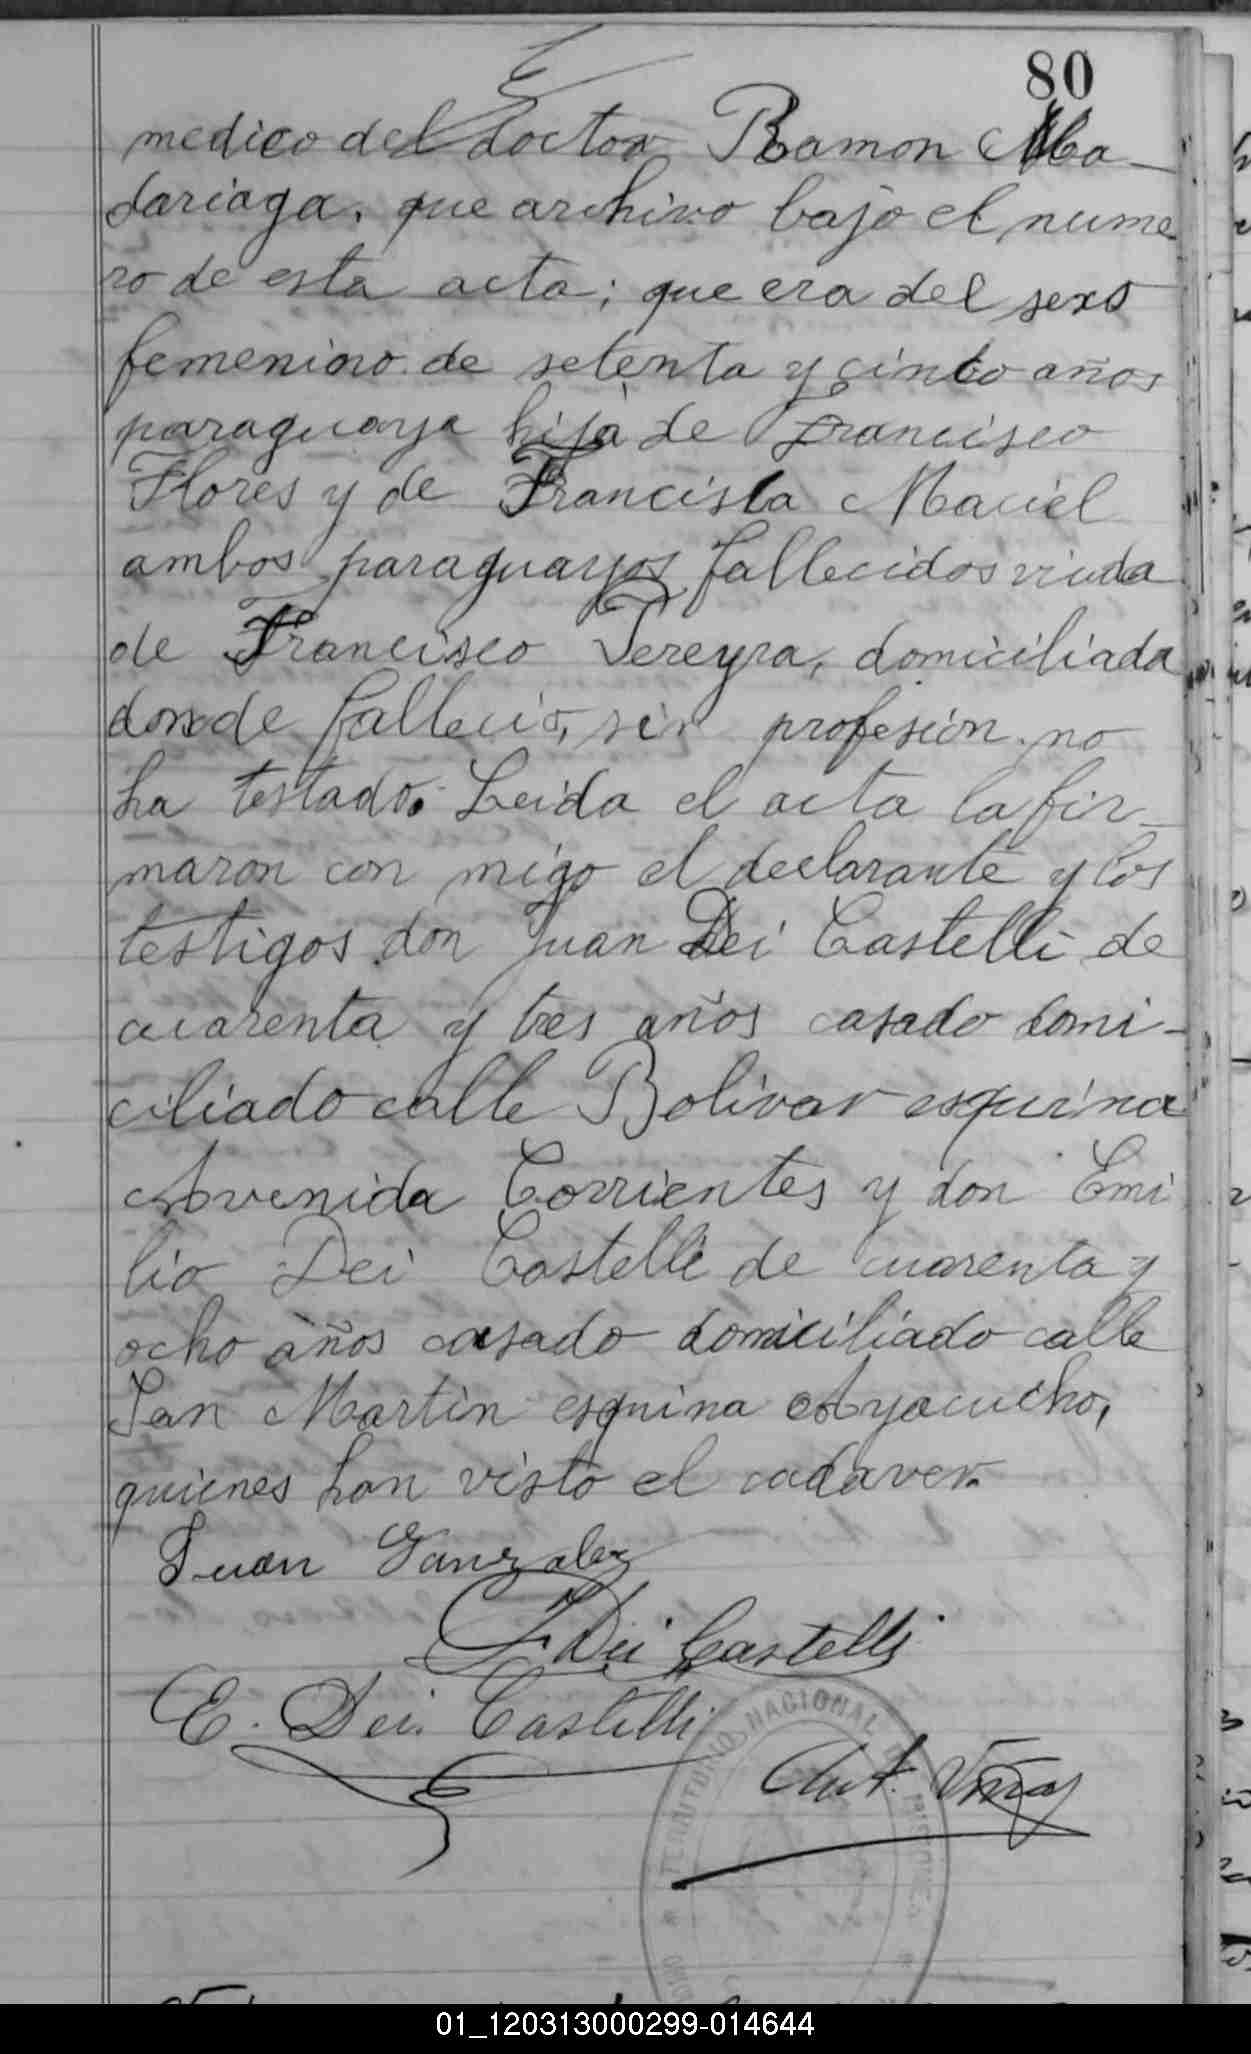 80
medico del doctor Ramon Ma-
dariaga, que archivo bajo el nume-
ro de esta acta; que era del sexo
femenino de setenta y cinco años
paraguaya hija de Francisco
Flores y de Francisca Maciel
ambos paraguayos fallecidos viuda
de Francisco Pereyra, domiciliada
donde falleció, sin profesión no
ha testado. Leida el acta la fir-
maron con migo el declarante y los
testigos don Juan Dei Castelli de
cuarenta y tres años casado domi-
ciliado calle Bolivar esquina
Avenida Corrientes y don Emi
lio Dei Castelli de cuarenta y
ocho años casado domiciliado calle
San Martin esquina Ayacucho,
quienes han visto el cadaver.
Juan Ganzalez
J Dei Castelli
E. Dei Castelli
TERRITORIO NACIONAL DE MISIONES
Ant.
01_120313000299-014644